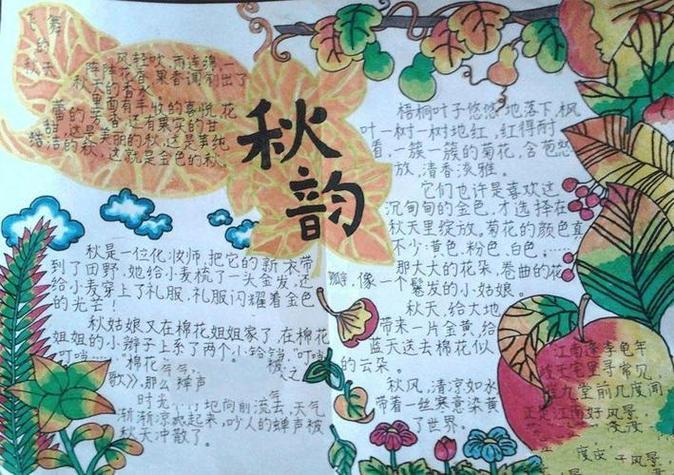 飞舞
的
秋天
阵阵风轻吹，雨连绵一
秋天的香水
里面有丰收的喜悦，花
蕾的香，还有果实的甘
甜，这是美丽的秋，这是纯
洁的秋，这就是金色的秋。
秋韵
秋是一位化妆师，把它的新衣带
到了田野，她给小麦梳了一头金发，还
给小麦穿上了礼服，礼服闪耀着金色
的光芒！
秋姑娘又在棉花姐姐家了，在棉花
姐姐的小辫子上系了两个小铃铛，“叮
叮……”棉花
歌》，那么蝉声
时光 地向前流去，天气
渐渐凉爽起来，吵人的蝉声被
秋天冲散了。
梧桐叶子悠悠地落下，枫
叶一树一树地红，红得耐
看，一簇一簇的菊花，含苞
放，清香淡雅。
它们也许是喜欢这
沉甸甸的金色，才选择在
秋天里绽放，菊花的颜色真
不少：黄色、粉色、白色……
那大大的花朵，卷曲的花
瓣，像一个鬈发的小姑娘。
秋天，给大地
带来一片金黄，给
蓝天送去棉花似
的云朵。
秋风，清凉如水
带着一丝寒意染黄
了世界。
江南逢李龟年
岐王宅里寻常见，
崔九堂前几度闻
正是江南好风景